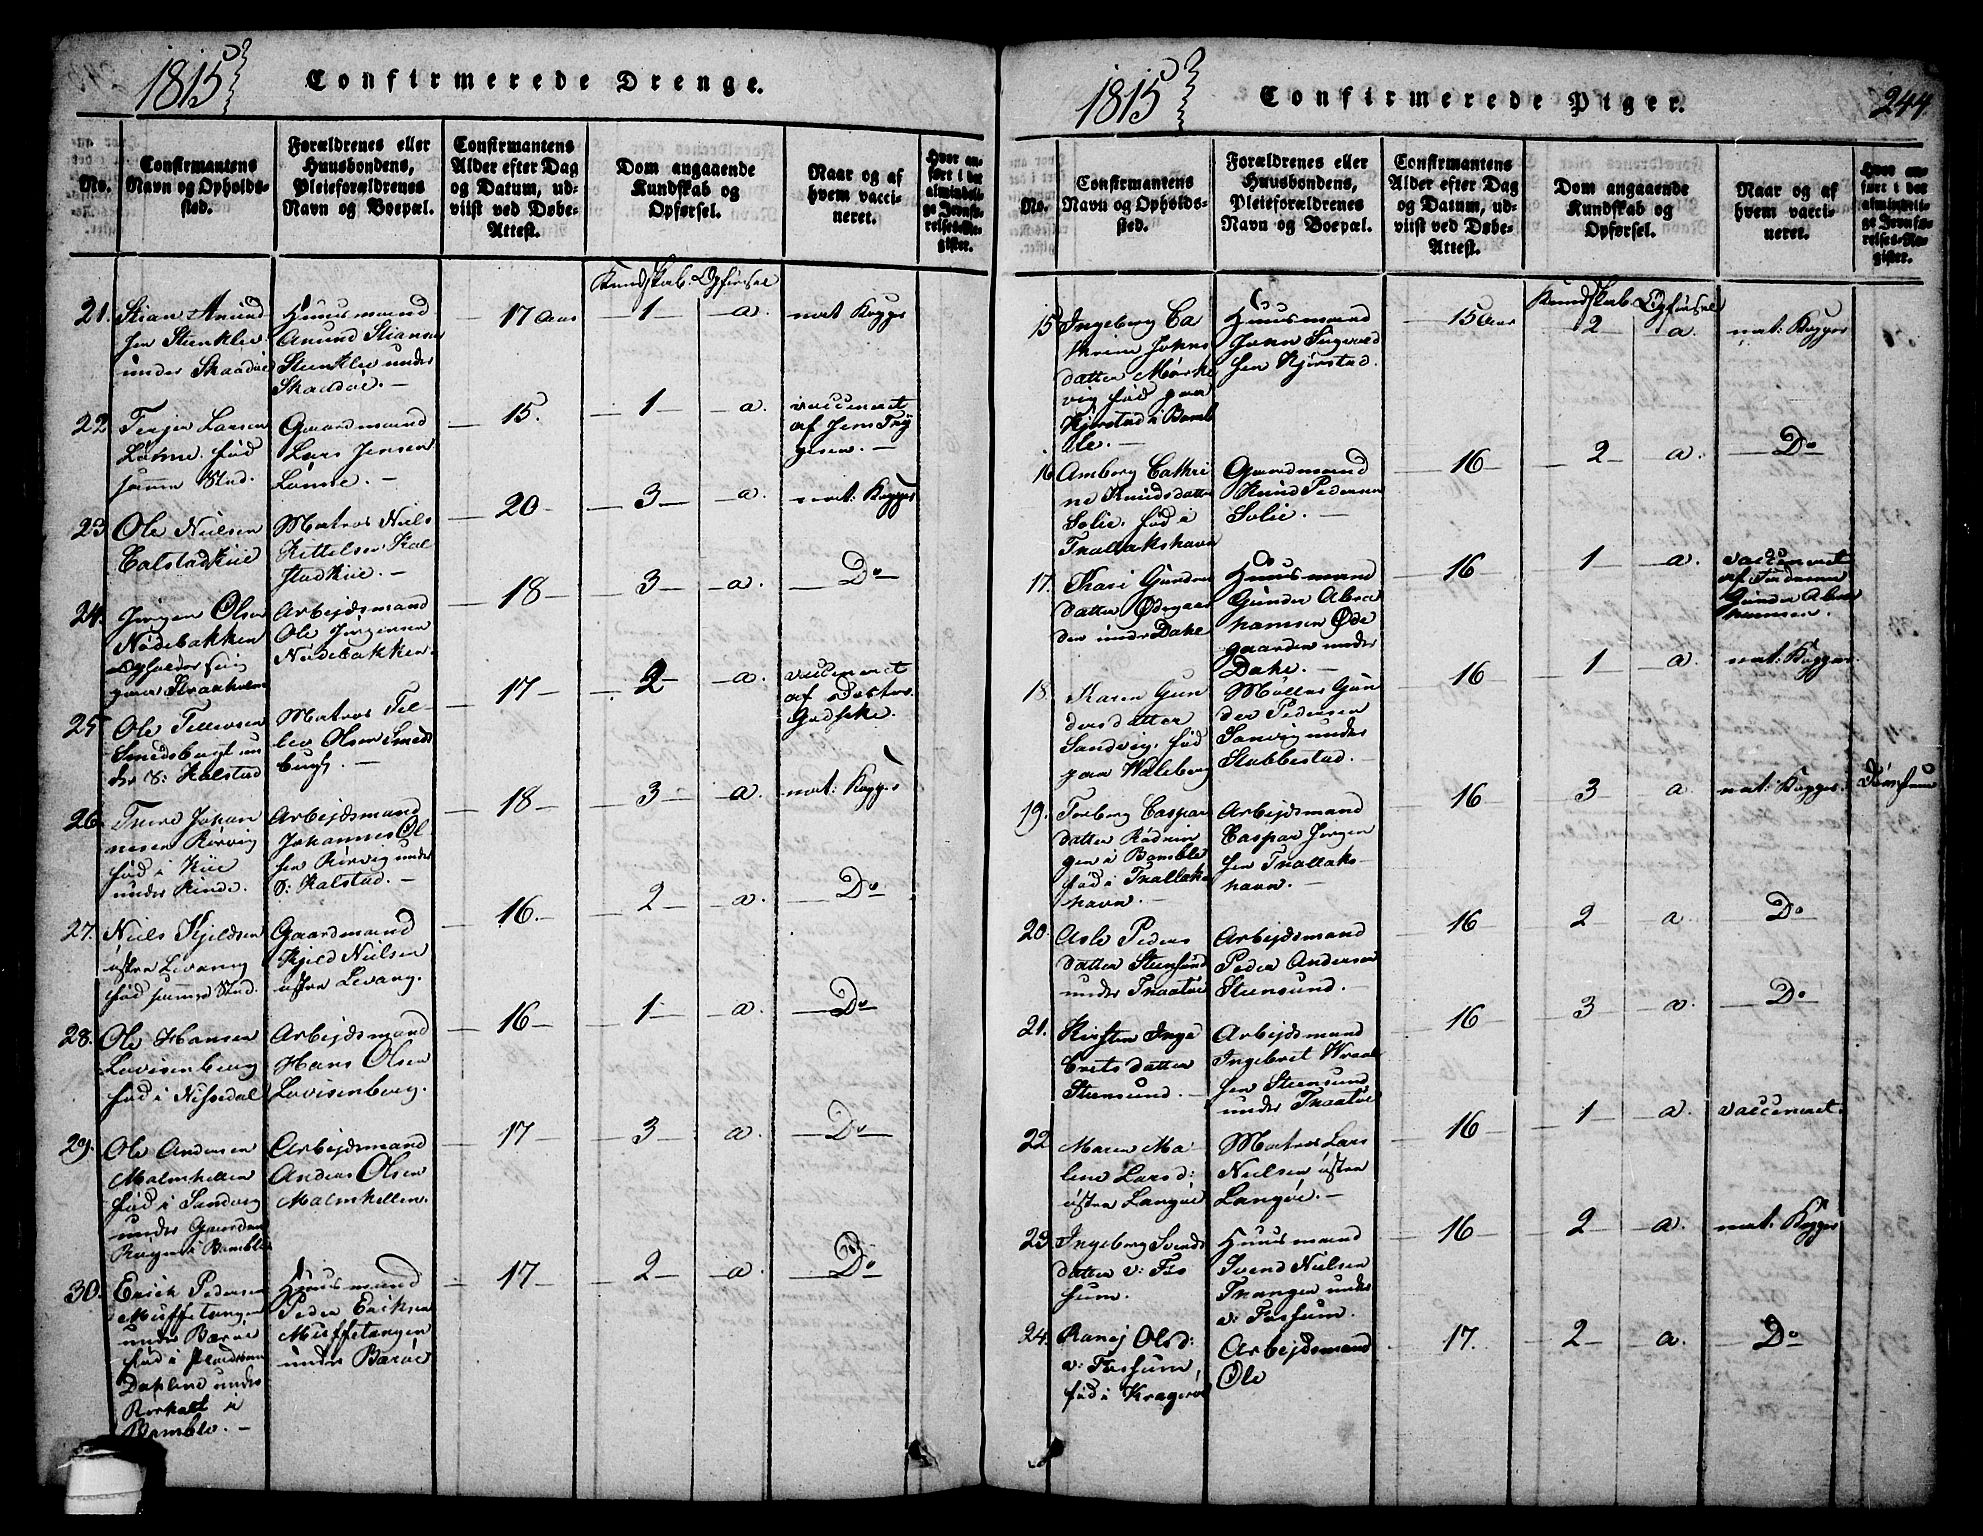 1815
Confirmerede Drenge.
No.
Confirmantens
Navn og Opholds-
sted.
Forældrenes eller
Huusbondens,
Pleieforældrenes
Navn og Boepæl.
Confirmantens
Alder efter Dag
og Datum, ud-
viist ved Døbe-
Attest.
Dom angaaende
Kundskab og
Opførsel.
Naar og af
hvem vacci-
neret.
Hvor an-
ført i det
almindeli-
ge Jevnfø-
relses-Re-
gister.
Kundskab. Opførsel
21. Stian Anund
sen Stenkliv
under Skaadøe
Huusmand
Anund Stiansen
Stenkliv under
Skaadøe. —
17 Aar
1
a.
nat. Kopper
22. Terjer Larsen
Lønne, fød
samme Stæd.
Gaardmand
Lars Jensen
Lønne. —
15.
1
a.
vaccineret
af Jens Try
gesen. —
23. Ole Nielsen
Calstadkiie
Matros Niels
Kittelsen Kal
stadkiie. —
20
3
a.
nat: Kopper
24. Jørgen Olsen
Nødebakken
opholder sig
paa Straaholm
Arbejdsmand
Ole Jørgensen
Nødebakken.
18
3
a.
Do
25. Ole Tellevsen
Smedsbugt un
der S: Kalstad
Matros Tel-
lev Olsen Smeds
bugt. —
17
2
a.
vaccineret
af Doctor
Godske.
26. Thore Johan
nesen Rørvig
fød i Kiie
under Rinde.
Arbejdsmand
Johannes Ol
sen Rørvig under
S: Kalstad. —
18
3
a.
nat: Kopper
27. Niels Kjeldsen
østre Levang
fød samme Stæd.
Gaardmand
Kjeld Nielsen
østre Levang.
16.
2
a.
Do
28. Ole Hansen
Lovisenberg
fød i Nissedal
Arbejdsmand
Hans Olsen
Lovisenberg.
16
1
a.
Do
29. Ole Andersen
Malmhellen
fød i Sandvig
under Gaarden
Rogn i Bamble
Arbejdsmand
Anders Olsen
Malmhellen.
17
3
a.
Do
30. Erich Pedersen
Muffetangen
under Barøe
fød i
Dahlene under
Rørholt i
Bamble. —
Huusmand
Peder Erichsen
Muffetangen
under Barøe
17
2
a.
Do
1815
Confirmerede Piger.
244.
No.
Confirmantens
Navn og Opholds-
sted.
Forældrenes eller
Huusbondens,
Pleieforældrenes
Navn og Boepæl.
Confirmantens
Alder efter Dag
og Datum, ud-
viist ved Døbe-
Attest.
Dom angaaende
Kundskab og
Opførsel.
Naar og af
hvem vacci-
neret.
Hvor an-
ført i det
almindeli-
ge Jevnfø-
relses-Re-
gister.
Kundskab. Opførsel
15. Ingeborg Ca
thrine Johns
datter Mørke
vig fød paa
Kjørstad i Bamb
le. —
Huusmand
John Ingevold
sen Kjørstad.
15 Aar
2
a.
nat: Kopper
16. Amborg Cathri
ne Knudsdatter
Solie, fød i
Trallakshavn
Gaardmand
Knud Pedersen
Solie. —
16
2
a.
Do
17. Kari Gunders
datter Ødegaar
den under Dahl
Huusmand
Gunder Abra
hamsen Øde
gaarden under
Dahl. —
16
1
a.
vaccineret
af Faderen
Gunder Abra
hamsen
18. Karen Gun
dersdatter
Sandvig, fød
paa Valeberg
Møller Gun
der Pedersen
Sanvig under
Stabbestad.
16
1
a.
nat: Kopper
19. Torborg Caspar
datter Rødnin
gen i Bamble
fød i Trallaks
havn. —
Arbejdsmand
Caspar Jørgen
sen Trallaks-
havn. —
16
3
a
nat: Kopper.
20. Asle Peders
datter Steensund
under Traatøe
Arbejdsmand
Peder Andersen
Steensund. —
16
2
a.
Do
21. Kirsten Inge
bretsdatter
Steensund. —
Arbejdsmand
Ingebret Wraal
sen Steensund
under Traatøe
16
3
a.
Do
22. Maren Ma-
lene Larsd:
østre Langøe
Matros Lars
Nielsen østre
Langøe. —
16
1
a.
vaccineret.
23. Ingeborg Svends
datter v: Fos
sum.
Huusmand
Svend Nielsen
Tranger under
v: Fossum.
16
2
a.
nat: Kopper
24. Ranej Olsd:
v: Fossum,
fød i Kragerøe
Arbejdsmand
Ole
17.
2
a.
Do